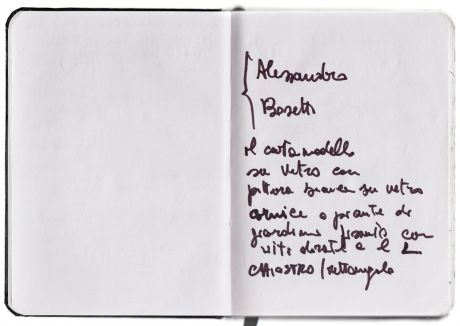 Alessandro
Bosetti
il cartamodello
su vetro con
pittura bianca su vetro
cornice o piante di
giardino fissato con
viti dorate e il
CHIOSTRO/rettangolo